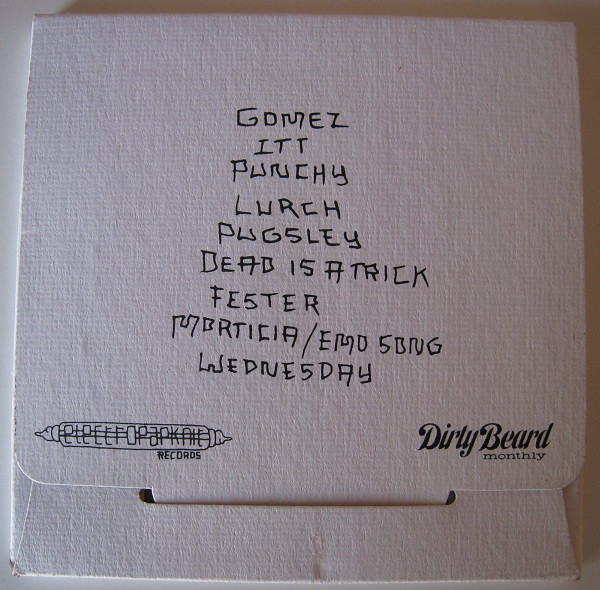 GOMEZ
ITT
PUNCHY
LURCH
PUGSLEY
DEAD IS A TRICK
FESTER
MORTICIA/EMO SONG
WEDNESDAY
RECORDS
Dirty Beard
monthly